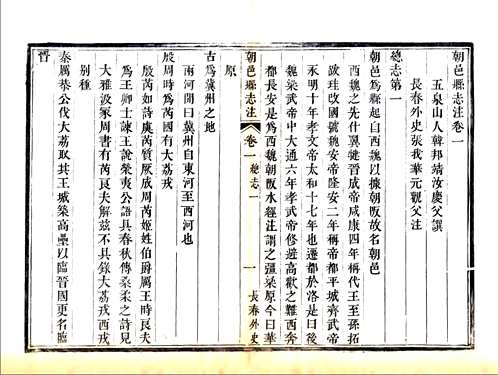 朝邑縣志注卷一
五泉山人韓邦靖汝慶父譔
長春外史張我華元觀父注
總志第一
朝邑爲縣起自西魏以據朝阪故名朝邑
西魏之先什翼犍晉成帝咸康四年稱代王至孫拓
跋珪改國號魏安帝隆安二年稱帝都平城齊武帝
永明十年孝文帝太和十七年也遷都於洛是曰後
魏梁武帝中大通六年孝武帝修避高歡之難西奔
都長安是爲西魏朝阪水經注謂之彊梁原今曰華
原
朝邑縣志注
卷一 總志
一
長春外史
古爲冀州之地
兩河閒曰冀州自東河至西河也
殷周時爲芮國有大荔戎
殷芮如詩虞芮質厥成周芮姬姓伯爵厲王時芮良夫
爲王卿士諫王說榮夷公語具春秋傳桑柔之詩見
大雅汲冢周書有芮良夫解茲不具錄大荔戎西戎
别種
秦厲恭公伐大荔取其王城築高壘以臨晉國更名臨
晉